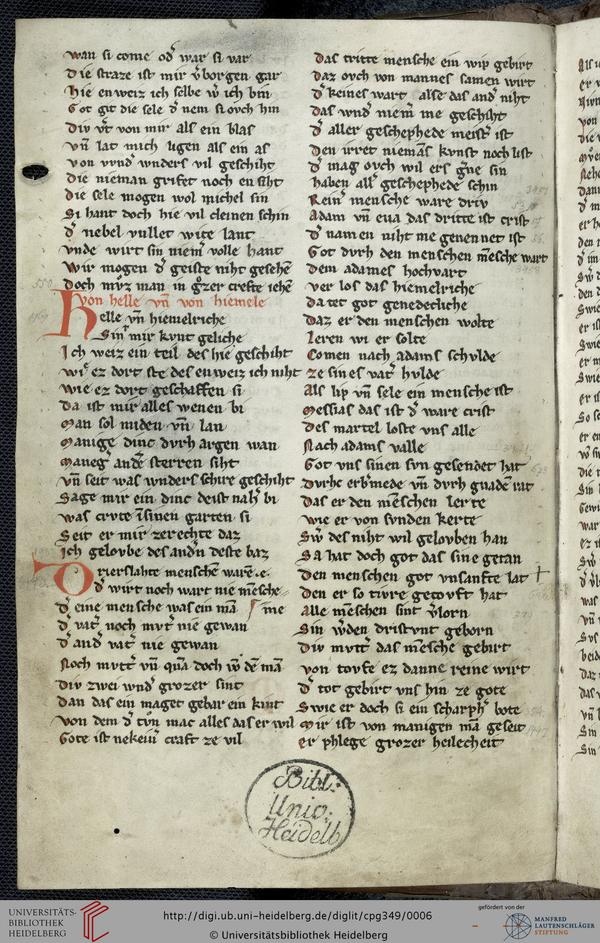 wan si come od᾽ war si var
Die straze ist mir v᾽borgen gar
Hie en weiz ich selbe w᾽ ich bin
Got git die sele d᾽ nem si ovch hin
Div v᾽t von mir als ein blas
Vn̄ lat mich ligen als ein as
Von vvnd᾽ wnders vil geschiht
Die nieman grifet noch en siht
Die sele mogen wol michel sin
Si hant doch hie vil cleinen schin
D᾽ nebel vullet wite lant
Vnde wirt sin niem᾽ volle hant
Wir mogen d᾽ geiste niht gesehē
Doch mvz man in g᾽zer crefte iehē
von helle vn̄ von hiemele
Helle vn̄ hiemelriche
Sin᾽ mir kvnt geliche
Ich weiz ein teil des hie geschiht
wie ez dort ste des en weiz ich niht
wie ez dort geschaffen si
Da ist mir alles wenen bi
Man sol miden vn̄ lan
Manige dinc dvrh argen wan
Maneg᾽ and᾽e sterren siht
Vn̄ seit was wnders schire geschiht
Sage mir ein dinc deist nah᾽ bi
was crvte ī sinen garten si
Seit er mir ze rechte daz
Ich gelovbe des and᾽n deste baz
Drierslahte menschen warē .e.
d᾽ wirt noch wart nie mēsche
D᾽ eine mensche was ein mā me
D᾽ vat᾽ noch mvt᾽ nie gewan
D᾽ and᾽ vat᾽ nie gewan
Noch mvtt᾽ vn̄ quā doch vō dē mā
Div zwei wnd᾽ grozer sint
Dan das ein maget gebar ein kint
Von dem d᾽ tvn mac alles das er wil
Gote ist nekein᾽ craft ze vil
Das tritte mensche ein wip gebirt
Daz ovch von mannes samen wirt
D᾽ keines wart alse das and᾽ niht
Das wnd᾽ niem᾽ me geschiht
D᾽ aller geschephede meist᾽ ist
Den irret niemās kvnst noch list
D᾽ mag ovch wil ers g᾽ne sin
haben all᾽ geschephede schin
Rein᾽ mensche ware driv
Adam vn̄ eua das dritte ist crist
D᾽ namen niht me genennet ist
Got dvrh den menschen mēsche wart
Dem adames hochvart
ver los das hiemelriche
Da tet got genedecliche
Daz er den menschen wolte
Leren wi er solte
Comen nach adams schvlde
Ze sines vat᾽ hvlde
Als lip vn̄ sele ein mensche ist
Messias das ist d᾽ ware crist
Des martel loste vns alle
Nach adams valle
Got vns sinen svn gesendet hat
Dvrhc erb᾽mede vn̄ dvrh gnadē rat
Das er den mēschen lerte
wie er von svnden kerte
Sw᾽ des niht wil gelovben han
Sa hat doch got das sine getan
Den menschen got vnsanfte lat
Den er so tivre getovft hat
Alle mēschen sint v᾽lorn
Sin w᾽den dristvnt geborn
Div mvtt᾽ das mēsche gebirt
von tovfe ez danne reine wirt
D᾽ tot gebirt vns hin ze gote
Swie er doch si ein scharph᾽ bote
Mir ist von manigen mā geseit
Er phlege grozer heilecheit
Bibl:
Univ:
Heidelb
UNIVERSITÄTS-
BIBLIOTHEK
HEIDELBERG
http://digi.ub.uni-heidelberg.de/diglit/cpg349/0006
© Universitätsbibliothek Heidelberg
gefördert von der
MANFRED
LAUTENSCHLÄGER
STIFTUNG